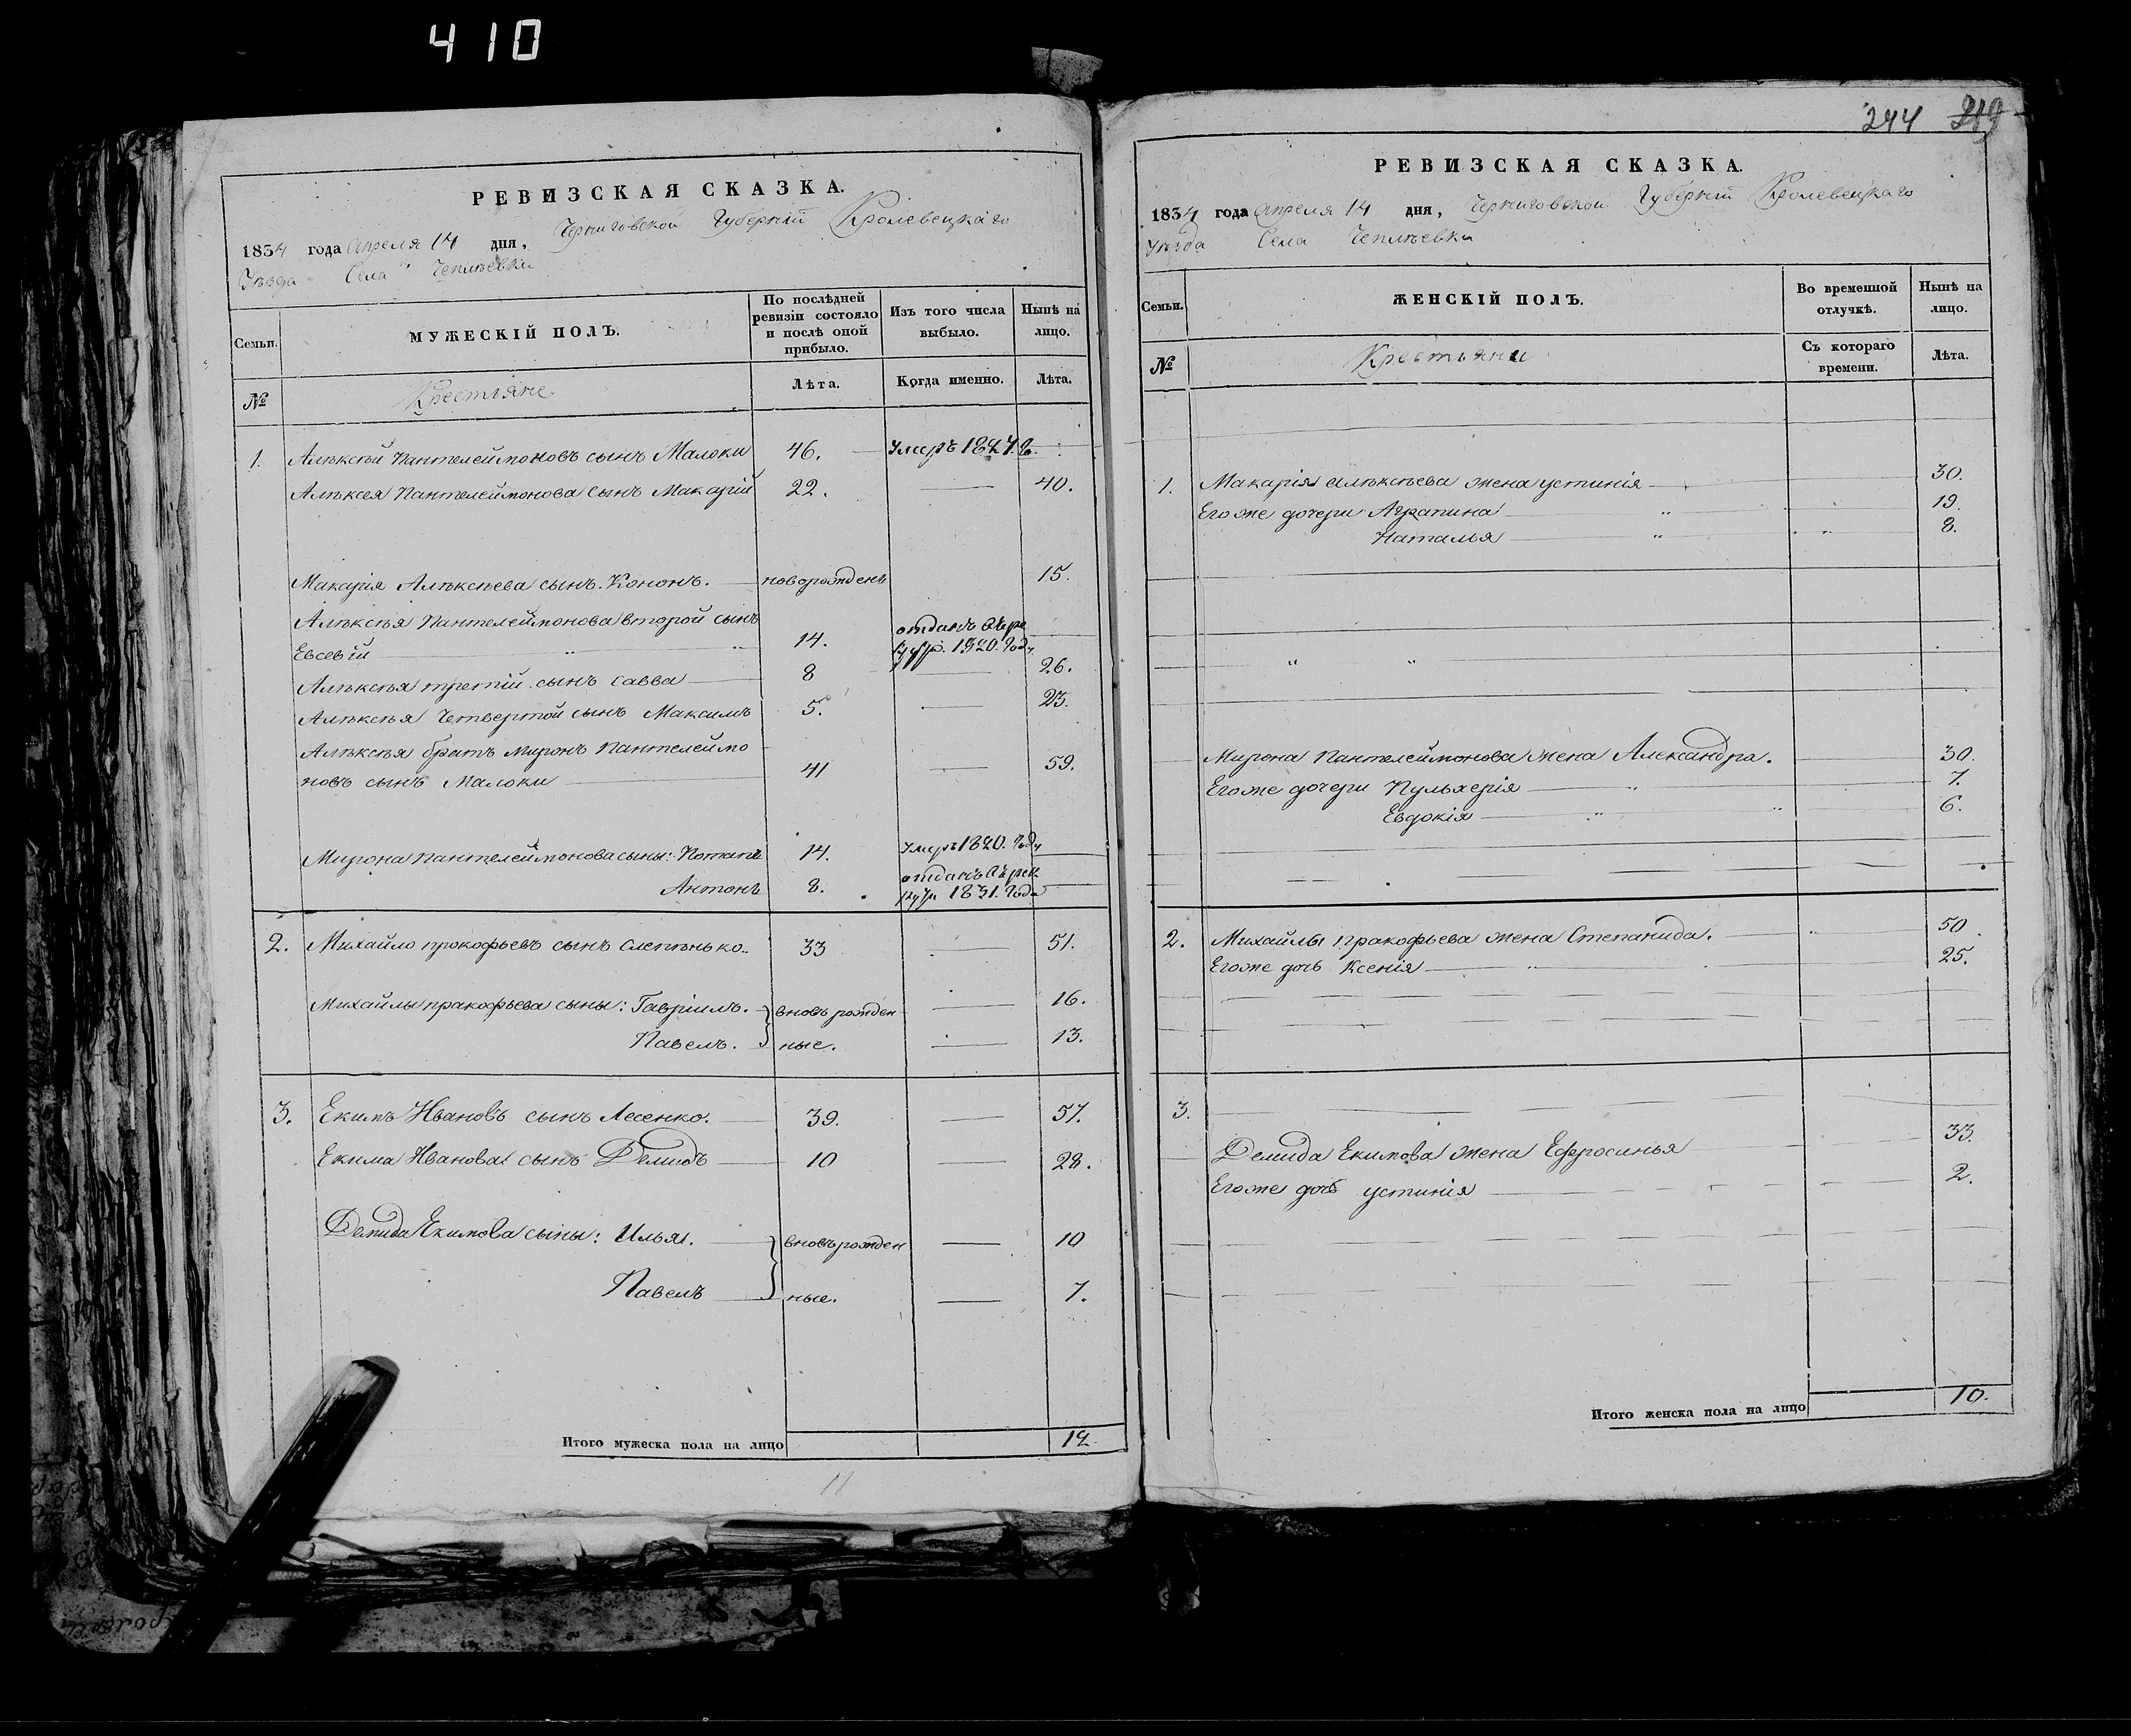 410
РЕВИЗСКАЯ СКАЗКА.
1834 года Апреля 14 дня, Черниговской Губерніи Кролевецкаго
Уѣзда Села Чепліевки
Семьи.
МУЖЕСКІЙ ПОЛЪ.
По послѣдней ревизіи состояло и послѣ оной прибыло.
Изъ того числа выбыло.
Нынѣ на лицо.
№
Крестьяне
Лѣта.
Когда именно.
Лѣта.
1. Алѣксѣй Пантелеймоновъ сынъ Малоки 46. Умеръ 1827. г.
Алѣксея Пантелеймонова сынъ Макарій 22. 40.
Макарія Алѣксѣева сынъ Кононъ. новорожденъ 15.
Алѣксѣя Пантелеймонова второй сынъ
Евсевій 14. отданъ въ ре
1820. Году
Алѣксѣя третій сынъ Савва 8 26.
Алѣксѣя Четвертой сынъ Максимъ 5. 23.
Алѣксѣя братъ Миронъ Пантелеймо
новъ сынъ Малоки 41 59.
Мирона Пантелеймонова сыны: Потапъ 14. умеръ 1820. Году
Антонъ 8. отданъ въ рек
руты 1831. Года
2. Михайло прокофьевъ сынъ Слепенько. 33 51.
Михайлы пракофьева сыны: Гавріилъ. вновь рожден 16.
Павелъ. ные. 13.
3. Екимъ Ивановъ сынъ Лесенко. 39. 57.
Екима Иванова сынъ Демидъ 10 28.
Демида Екимова сыны: Илья. вновь рожден 10
Павелъ ные. 7.
Итого мужеска пола на лицо 12.
11
244 219
РЕВИЗСКАЯ СКАЗКА.
1834 года Апреля 14 дня, Черниговской Губерніи Кролевецкаго
Уѣзда Села Чепліевки
Семьи.
ЖЕНСКІЙ ПОЛЪ.
Во временной отлучкѣ.
Нынѣ на лицо.
№
Крестьяни
Съ котораго времени.
Лѣта.
1. Макарія Алѣксѣева жена устинія 30.
Его же дочери Аграпина 19.
Наталья 8.
Мирона Пантелеймонова жена Александра. 30.
Его же дочери Пульхерія 7.
Евдокія 6.
2. Михайлы пракофьева жена Степанида. 50.
Его же дочь Ксенія 25.
3.
Демида Екимова жена Ефросинья 33.
Его же дочь устинія 2.
Итого женска пола на лицо 10.